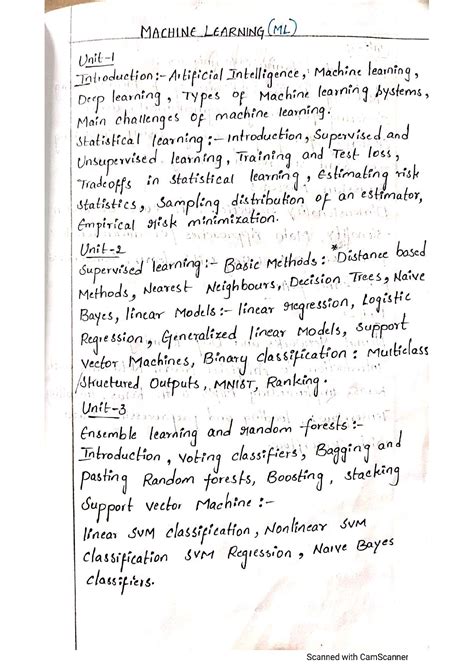 MACHINE LEARNING (ML)
Unit-1
Introduction:- Artificial Intelligence, Machine learning,
Deep learning, Types of Machine learning systems,
Main challenges of machine learning.
Statistical learning:- Introduction, Supervised and
Unsupervised learning, Training and Test loss,
Tradeoffs in statistical learning, Estimating risk
statistics, Sampling distribution of an estimator,
Empirical risk minimization.
Unit-2
Supervised learning:- Basic Methods: *Distance based
Methods, Nearest Neighbours, Decision Trees, Naive
Bayes, linear Models:- linear regression, Logistic
Regression, Generalized linear Models, Support
Vector Machines, Binary classification: Multiclass
/Structured Outputs, MNIST, Ranking.
Unit-3
Ensemble learning and random forests:-
Introduction, voting classifiers, Bagging and
Pasting Random forests, Boosting, stacking
Support vector Machine:-
linear SVM classification, Nonlinear SVM
classification SVM Regression, Naive Bayes
classifiers.
Scanned with CamScanner